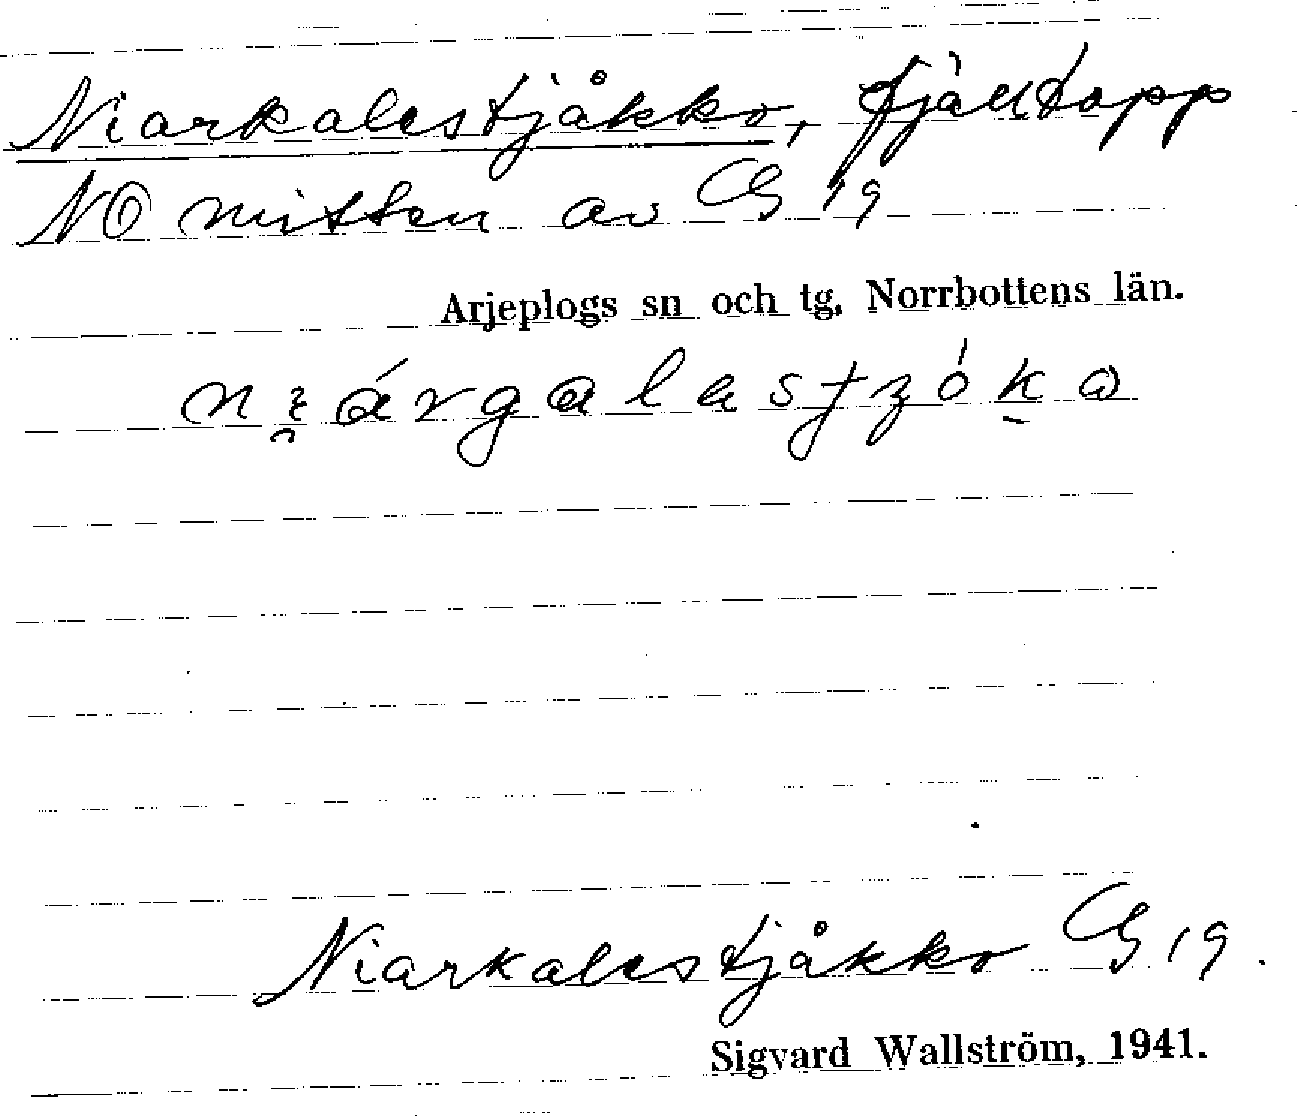 Niarkalestjåkko, fjälltopp
NO mitten av G 19
Arjeplogs sn och tg. Norrbottens län.
Niarkalestjåkko G 19.
Sigvard Wallström, 1941.